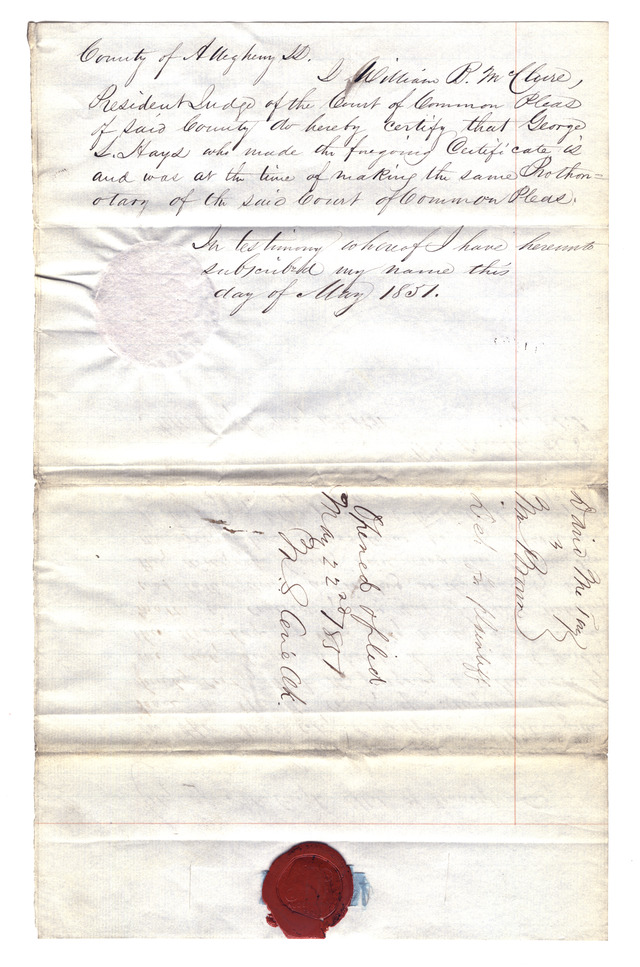 County of Allegheny SS.
I William B. McClure,
President Judge of the Court of Common Pleas
of said County do hereby certify that George
S. Hays who made the foregoing Certificate is
and was at the time of making the same Prothon=
otary of the said Court of Common Pleas.
In testimony whereof I have hereunto
subscribed my name this
day of May 1851.
David
Wm Brown
plaintiff
Opened & filed
May 22nd 1851